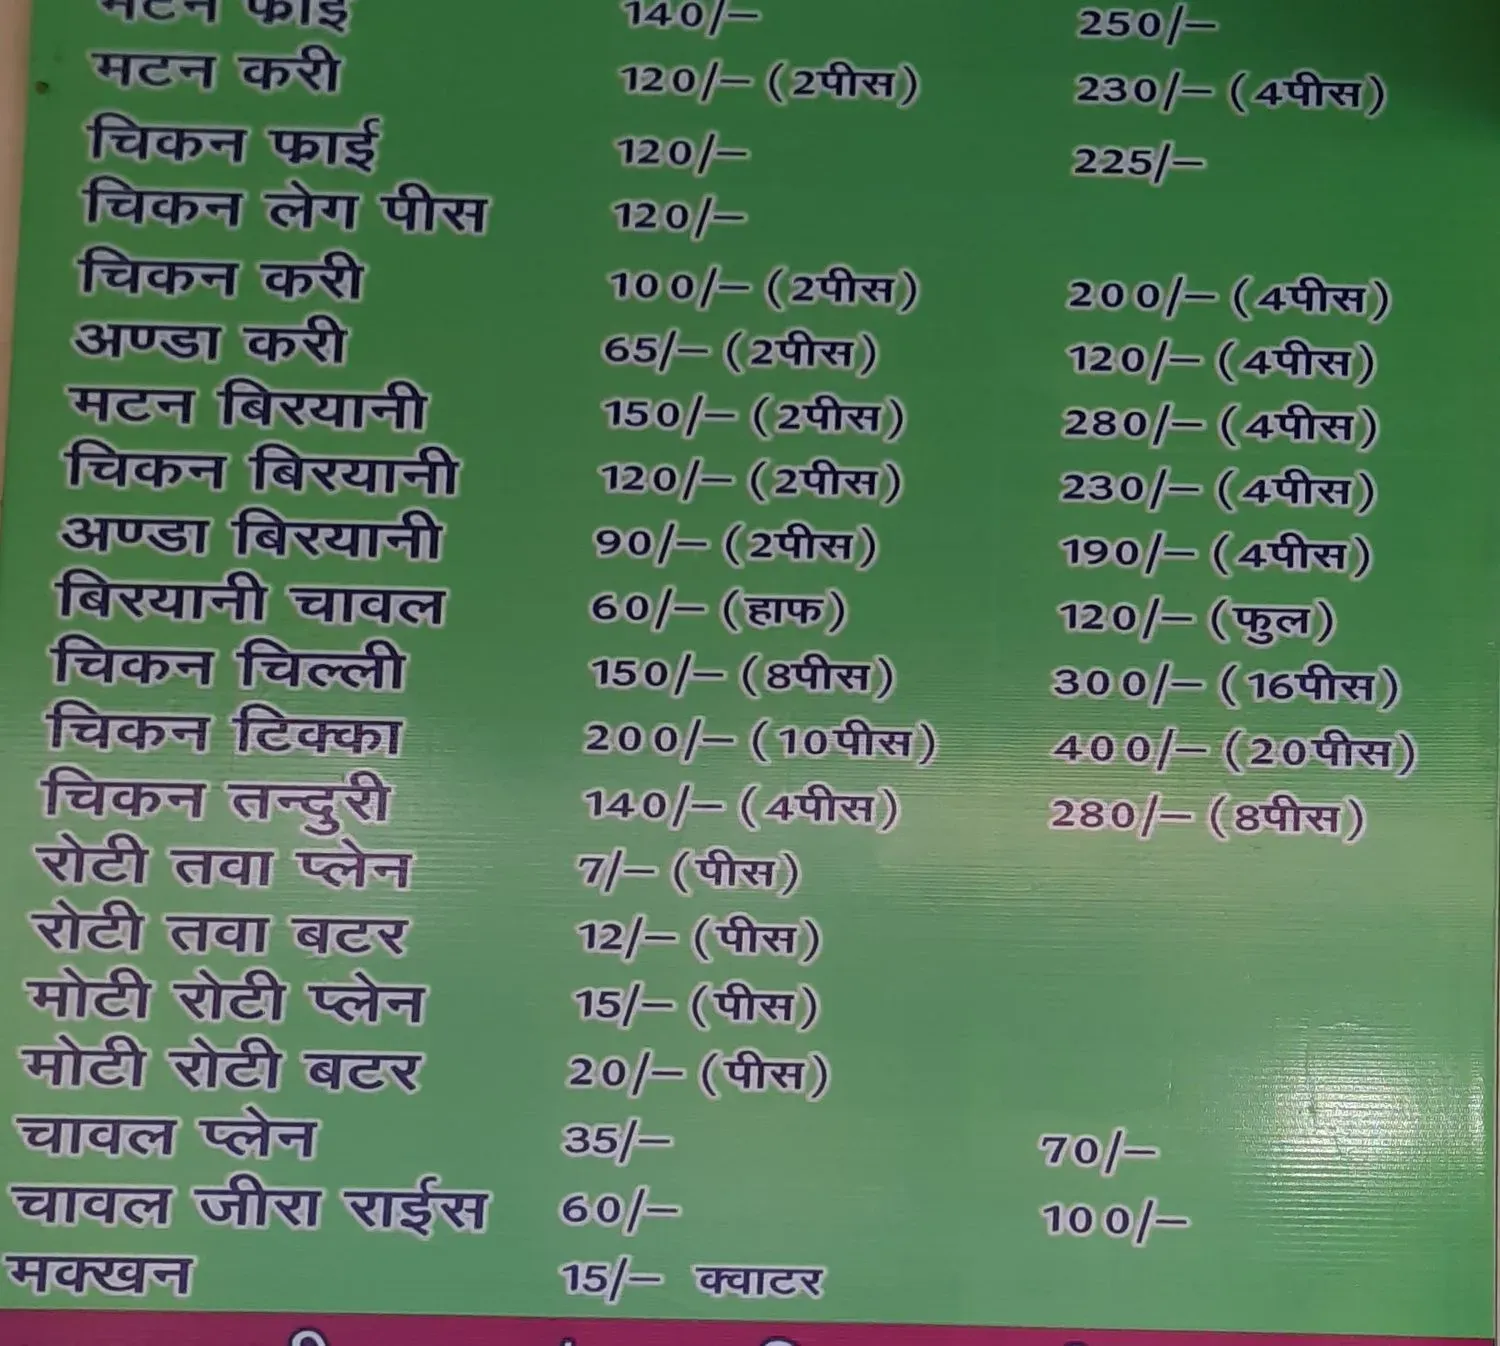 मटन फाई 140/– 250/–
मटन करी 120/– (2पीस) 230/– (4पीस)
चिकन फाई 120/– 225/–
चिकन लेग पीस 120/–
चिकन करी 100/– (2पीस) 200/– (4पीस)
अण्डा करी 65/– (2पीस) 120/– (4पीस)
मटन बिरयानी 150/– (2पीस) 280/– (4पीस)
चिकन बिरयानी 120/– (2पीस) 230/– (4पीस)
अण्डा बिरयानी 90/– (2पीस) 190/– (4पीस)
बिरयानी चावल 60/– (हाफ) 120/– (फुल)
चिकन चिल्ली 150/– (8पीस) 300/– (16पीस)
चिकन टिक्का 200/– (10पीस) 400/– (20पीस)
चिकन तन्दुरी 140/– (4पीस) 280/– (8पीस)
रोटी तवा प्लेन 7/– (पीस)
रोटी तवा बटर 12/– (पीस)
मोटी रोटी प्लेन 15/– (पीस)
मोटी रोटी बटर 20/– (पीस)
चावल प्लेन 35/– 70/–
चावल जीरा राईस 60/– 100/–
मक्खन 15/– क्वाटर